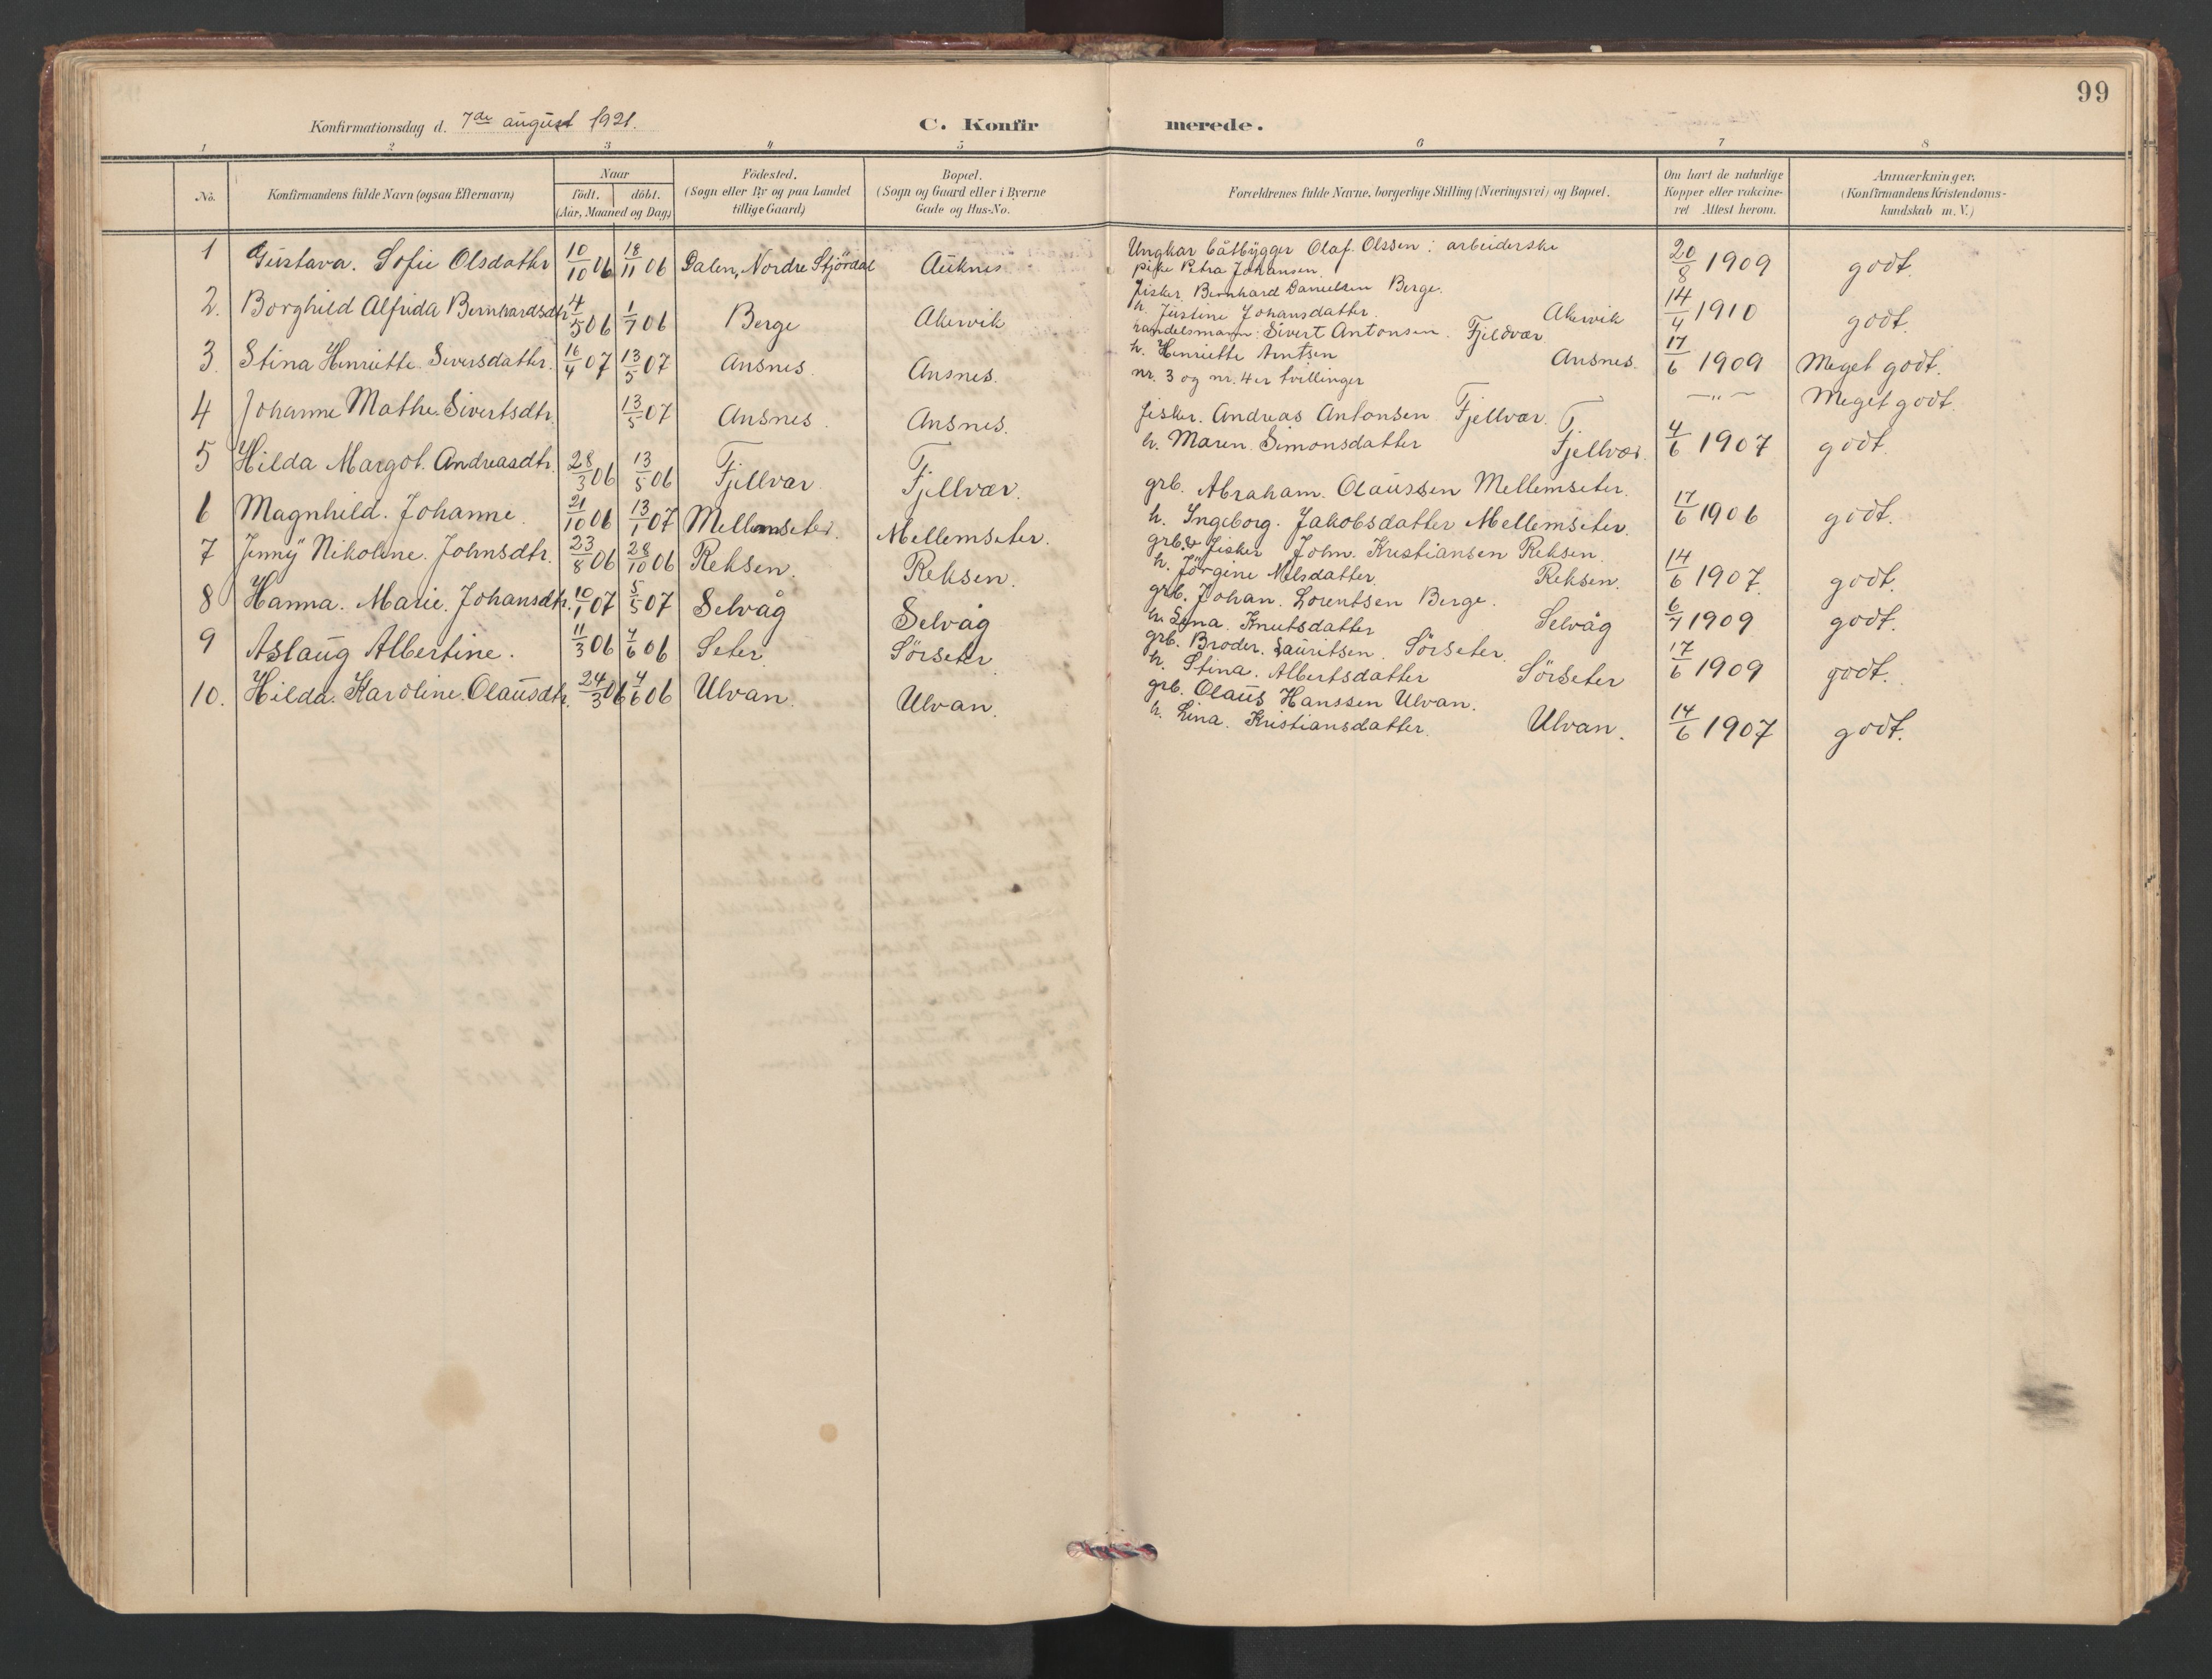 99
Konfirmationsdag d. 7de august 1921. C. Konfirmerede.
1 2 3 4 5 6 7 8
No. Konfirmandens fulde Navn (ogsaa Efternavn) Naar födt. döbt. (Aar, Maaned og Dag) Födested. (Sogn eller By og paa Landet tillige Gaard) Bopæl. (Sogn og Gaard eller i Byerne Gade og Hus-No. Forældrenes fulde Navne, borgerlige Stilling (Næringsvei) og Bopæl. Om havt de naturlige Kopper eller vakcineret Attest herom. Anmærkninger. (Konfirmandens Kristendomskundskab m. V.)
1 Gustava. Sofie Olsdatter 10/10 06 18/11 06 Dalen, Nordre Stjördal Auknes Ungkar båtbygger Olaf. Olssen: arbeiderske 20/8 1909 godt.
pike Petra Johansen.
2. Borghild Alfrida Bernhardsdtr 4/5 06 1/7 06 Berge Akervik fisker. Bernhard Danielsen Berge. 14/4 1910 godt.
h. Justine Johansdatter. Akervik
3. Stina Henriette Siversdatter. 16/4 07 13/5 07 Ansnes. Ansnes. handelsmann: Sivert Antonsen. Fjeldvær 17/6 1909 Meget godt.
h. Henriette Arntsen Ansnes.
nr. 3 og nr. 4 er tvillinger
4 Johanne Mathe. Sivertsdtr. 13/5 07 Ansnes. Ansnes. —„— Meget godt.
5 Hilda Margot. Andreasdtr. 28/3 06 13/5 06 Fjellvær. Fjellvær. fisker. Andreas Antonsen Fjellvær. 4/6 1907 godt.
h. Maren. Simonsdatter Fjellvær.
6 Magnhild. Johanne. 21/10 06 13/1 07 Mellemseter. Mellemseter. grb. Abraham. Olaussen Mellemseter. 17/6 1906 godt.
h. Ingeborg. Jakobsdatter Mellemseter.
7 Jenny Nikoline. Johnsdtr. 23/8 06 28/10 06 Reksen. Reksen. grb. & fisker John. Kristiansen Reksen. 14/6 1907. godt.
h. Jörgine Nilsdatter. Reksen.
8 Hanna. Marie. Johansdtr. 10/1 07 5/5 07 Selvåg Selvåg grb. Johan. Lorentsen Berge. 6/7 1909 godt.
h. Lyna. Knutsdatter Selvåg
9 Aslaug Albertine. 11/3 06 4/6 06 Seter. Sörseter grb. Broder. Lauritsen. Sörseter. 17/6 1909 godt.
h. Stina. Albertsdatter Sörseter
10. Hilda. Karoline. Olausdtr. 24/3 06 4/6 06 Ulvan. Ulvan. grb. Olaus Hanssen Ulvan. 14/6 1907 godt.
h. Lina. Kristiansdatter. Ulvan.